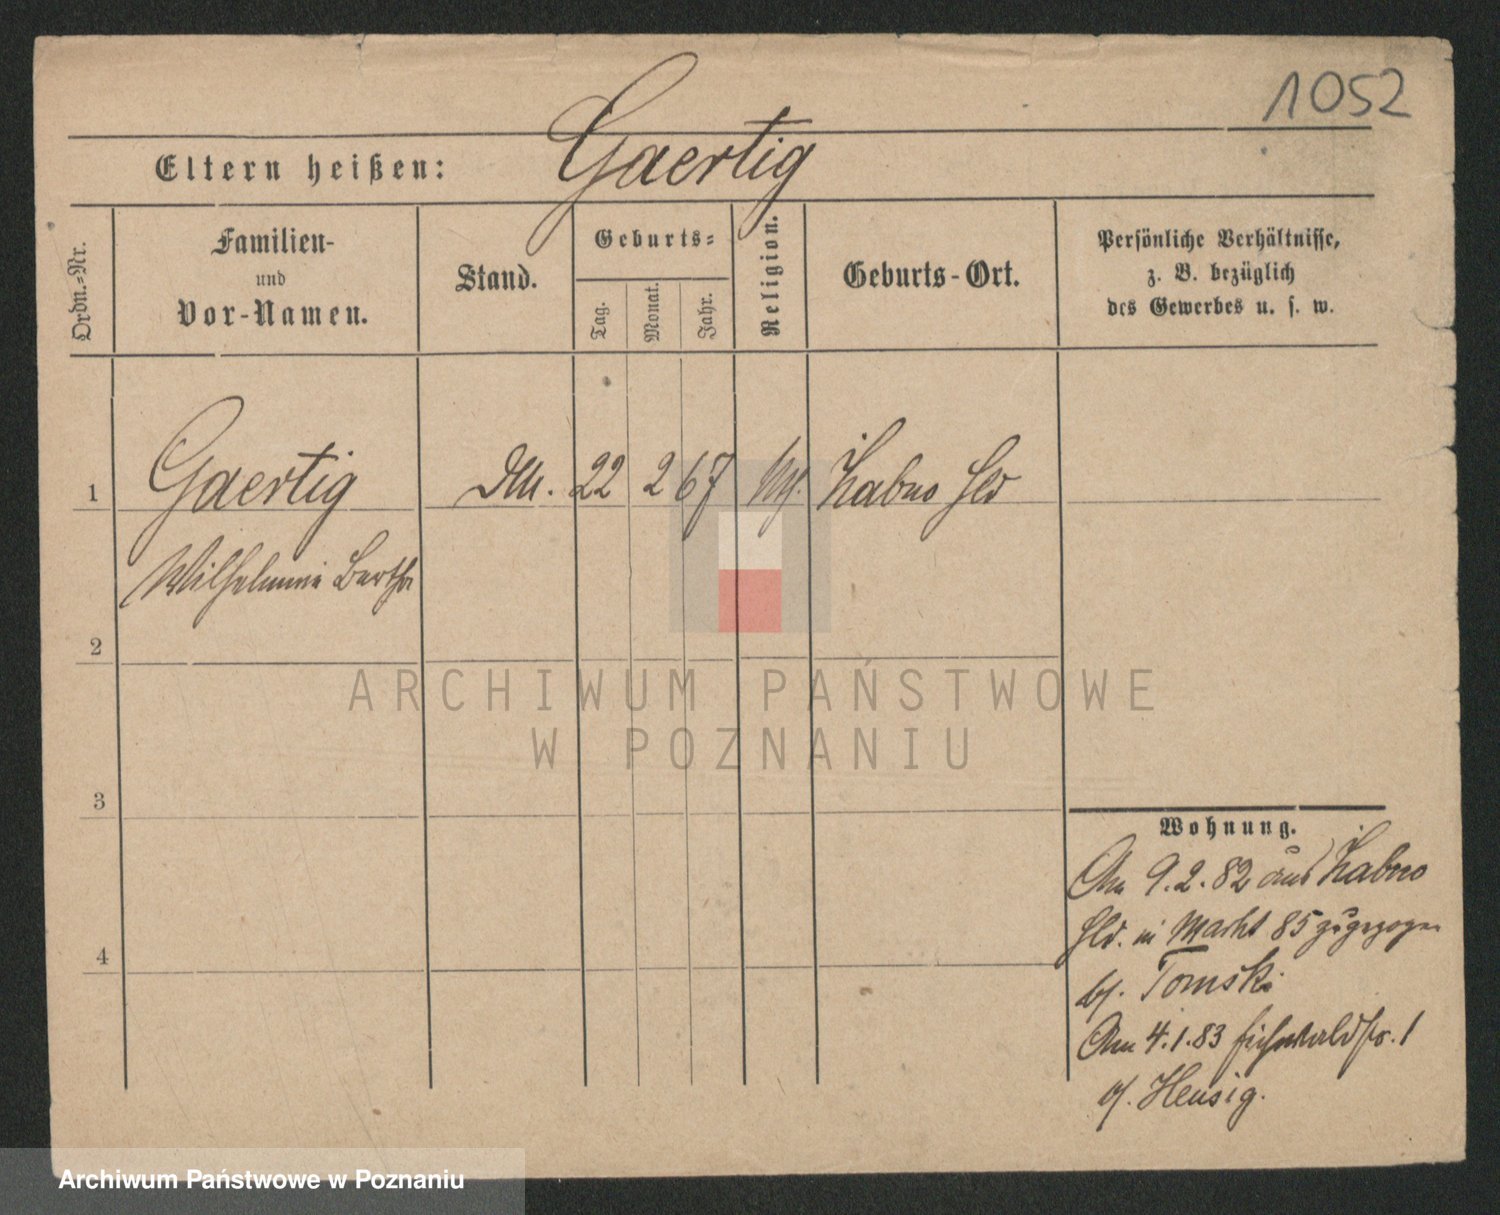 1052
Eltern heißen: Gaertig
Ordn.=Nr.
Familien-
und
Vor-Namen.
Stand.
Geburts=
Tag.
Monat.
Jahr.
Religion.
Geburts-Ort.
Persönliche Verhältnisse,
z. B. bezüglich
des Gewerbes u. s. w.
1 Gaertig 22 2 67 Zabno
Wilhelmine Bertha
2
ARCHIWUM PAŃSTWOWE
W POZNANIU
3
4
Wohnung.
Am 9.2.82 aus Zabno
in Markt 85 zugezogen
bei Tomski
Am 4.1.83 Fischereistr. 1
Hensig.
Archiwum Państwowe w Poznaniu